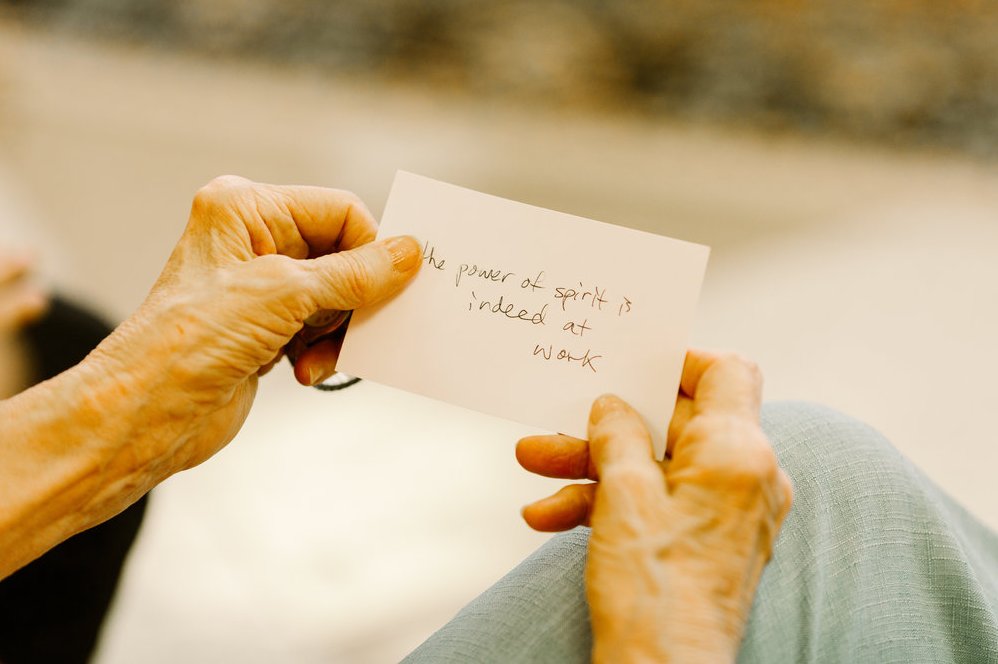 the power of spirit is
indeed at
work